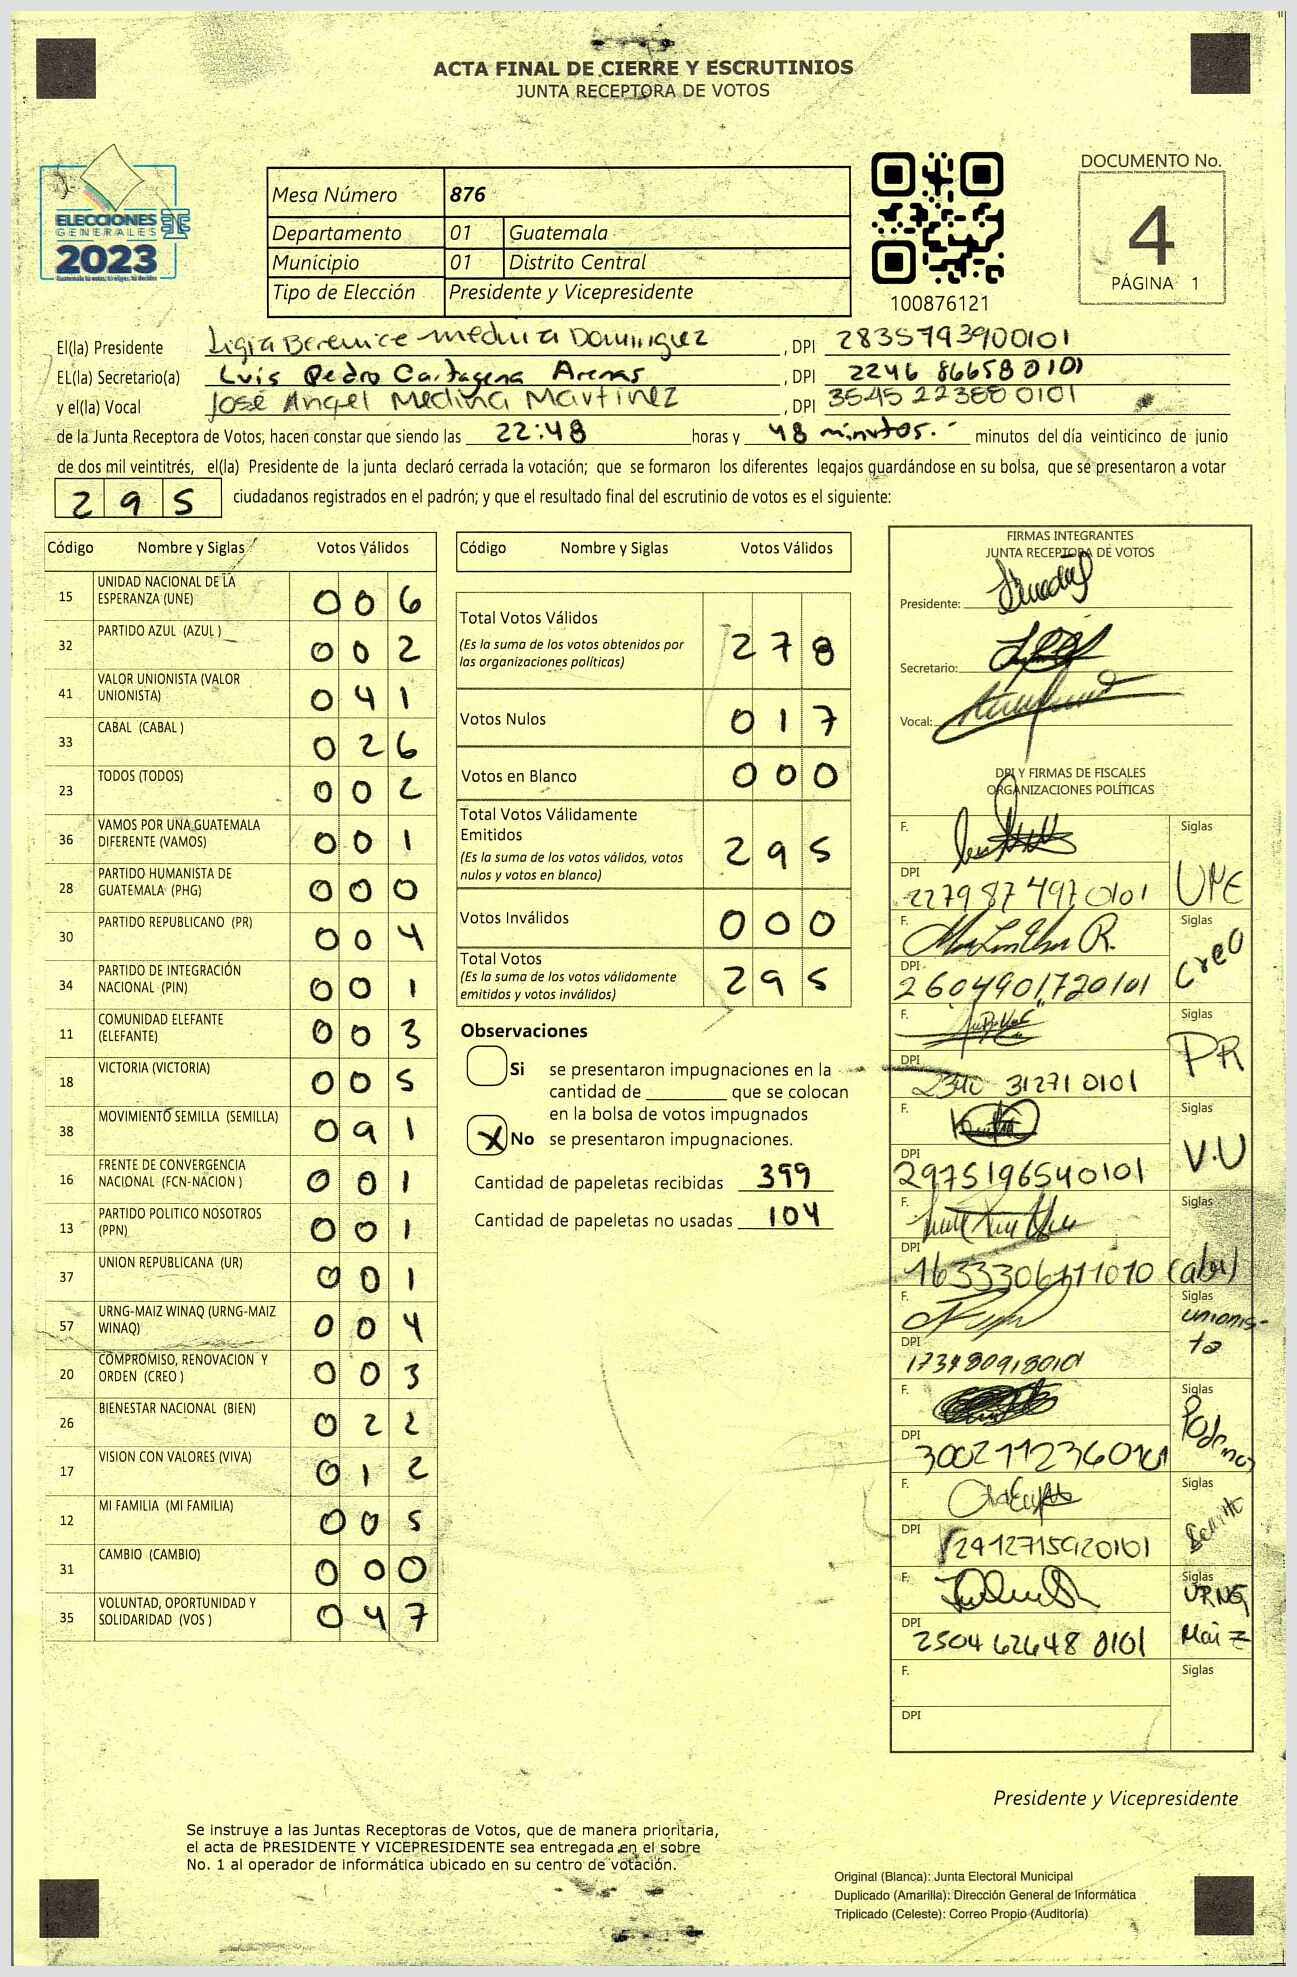 ACTA FINAL DE CIERRE Y ESCRUTINIOS
JUNTA RECEPTORA DE VOTOS
ELECCIONES
GENERALES
2023
Mesa Número 876
Departamento 01 Guatemala
Municipio 01 Distrito Central
Tipo de Elección Presidente y Vicepresidente
100876121
DOCUMENTO No.
4
PÁGINA 1
El(la) Presidente Ligia Berenice Medina Dominguez , DPI 2835793900101
EL(la) Secretario(a) Luis Pedro Cartagena Arenas , DPI 2246 86658 0101
y el(la) Vocal José Angel Medina Martinez , DPI 3545 22388 0101
de la Junta Receptora de Votos, hacen constar que siendo las 22:48 horas y 48 minutos.- minutos del día veinticinco de junio
de dos mil veintitrés, el(la) Presidente de la junta declaró cerrada la votación; que se formaron los diferentes legajos guardándose en su bolsa, que se presentaron a votar
295 ciudadanos registrados en el padrón; y que el resultado final del escrutinio de votos es el siguiente:
Código Nombre y Siglas Votos Válidos
15 UNIDAD NACIONAL DE LA ESPERANZA (UNE) 006
32 PARTIDO AZUL (AZUL ) 002
41 VALOR UNIONISTA (VALOR UNIONISTA) 041
33 CABAL (CABAL ) 026
23 TODOS (TODOS) 002
36 VAMOS POR UNA GUATEMALA DIFERENTE (VAMOS) 001
28 PARTIDO HUMANISTA DE GUATEMALA (PHG) 000
30 PARTIDO REPUBLICANO (PR) 004
34 PARTIDO DE INTEGRACIÓN NACIONAL (PIN) 001
11 COMUNIDAD ELEFANTE (ELEFANTE) 003
18 VICTORIA (VICTORIA) 005
38 MOVIMIENTO SEMILLA (SEMILLA) 091
16 FRENTE DE CONVERGENCIA NACIONAL (FCN-NACION ) 001
13 PARTIDO POLITICO NOSOTROS (PPN) 001
37 UNION REPUBLICANA (UR) 001
57 URNG-MAIZ WINAQ (URNG-MAIZ WINAQ) 004
20 COMPROMISO, RENOVACION Y ORDEN (CREO ) 003
26 BIENESTAR NACIONAL (BIEN) 022
17 VISION CON VALORES (VIVA) 012
12 MI FAMILIA (MI FAMILIA) 005
31 CAMBIO (CAMBIO) 000
35 VOLUNTAD, OPORTUNIDAD Y SOLIDARIDAD (VOS ) 047
Código Nombre y Siglas Votos Válidos
Total Votos Válidos 278
(Es la suma de los votos obtenidos por
las organizaciones políticas)
Votos Nulos 017
Votos en Blanco 000
Total Votos Válidamente
Emitidos 295
(Es la suma de los votos válidos, votos
nulos y votos en blanco)
Votos Inválidos 000
Total Votos 295
(Es la suma de los votos válidamente
emitidos y votos inválidos)
Observaciones
Si se presentaron impugnaciones en la
cantidad de ________ que se colocan
en la bolsa de votos impugnados
X No se presentaron impugnaciones.
Cantidad de papeletas recibidas 399
Cantidad de papeletas no usadas 104
FIRMAS INTEGRANTES
JUNTA RECEPTORA DE VOTOS
Presidente:
Secretario:
Vocal:
DPI Y FIRMAS DE FISCALES
ORGANIZACIONES POLÍTICAS
F. Siglas UNE
DPI 2279 87 4970101
F. Siglas Creo
DPI 2604901720101
F. Siglas PR
DPI 2340 31271 0101
F. Siglas V.U
DPI 2975196540101
F. Siglas Cabal
DPI
F. Siglas unionista
DPI
F. Siglas Podemos
DPI
F. Siglas
DPI 2412715920101
F. Siglas URNG Maiz
DPI 2504 62648 0101
F. Siglas
DPI
Presidente y Vicepresidente
Se instruye a las Juntas Receptoras de Votos, que de manera prioritaria,
el acta de PRESIDENTE Y VICEPRESIDENTE sea entregada en el sobre
No. 1 al operador de informática ubicado en su centro de votación.
Original (Blanca): Junta Electoral Municipal
Duplicado (Amarilla): Dirección General de Informática
Triplicado (Celeste): Correo Propio (Auditoría)